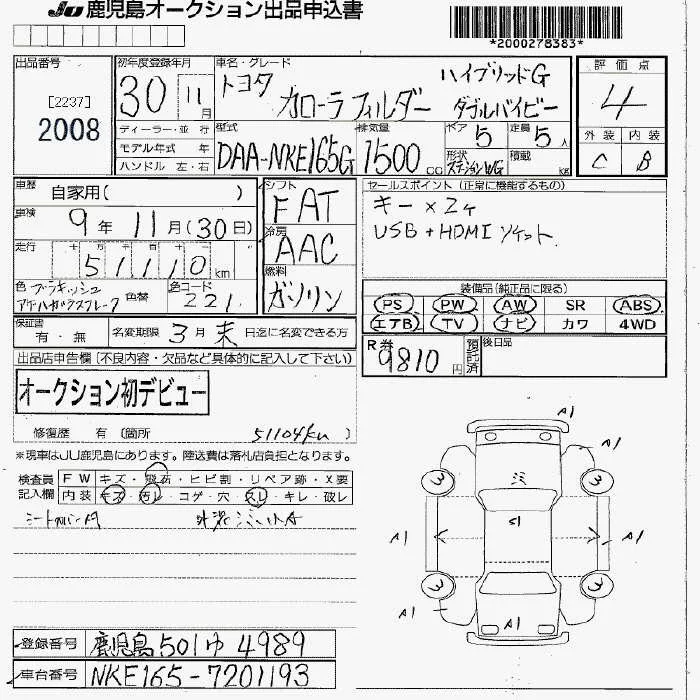 JU 鹿児島オークション出品申込書
*2000278383*
出品番号
[2237]
2008
初年度登録年月
30 11月
車名・グレード
トヨタ ハイブリッドG
カローラフィルダー ダブルバイビー
評価点
4
外装 内装
C B
ディーラー・並行
モデル年式 年
ハンドル 左・右
型式
DAA-NKE165G
排気量
1500 cc
ドア 5
定員 5人
形状 ステーションWG
積載 kg
車歴
自家用( )
車検
9年 11月(30日)
走行
51110km
色
色替
色コード
221
シフト
FAT
冷房
AAC
燃料
ガソリン
セールスポイント (正常に機能するもの)
キー×2ヶ
USB+HDMIソケット
装備品(純正品に限る)
PS PW AW SR ABS
エアB TV ナビ カワ 4WD
R券
9810円
預託済
後日品
保証書
有・無
名変期限 3月末日迄に名変できる方
出品店申告欄 (不良内容・欠品など具体的に記入して下さい)
オークション初デビュー
修復歴 有 (箇所 51104km )
※現車はJU鹿児島にあります。陸送費は落札店負担となります。
検査員記入欄
FW キズ・飛石・ヒビ割・リペア跡・X要
内装 キズ・汚レ・コゲ・穴・スレ・キレ・破レ
A1
A1
3
3
ミミ
S1
A1
A1
3
3
A1
A1
登録番号 鹿児島501ゆ4989
車台番号 NKE165-7201193